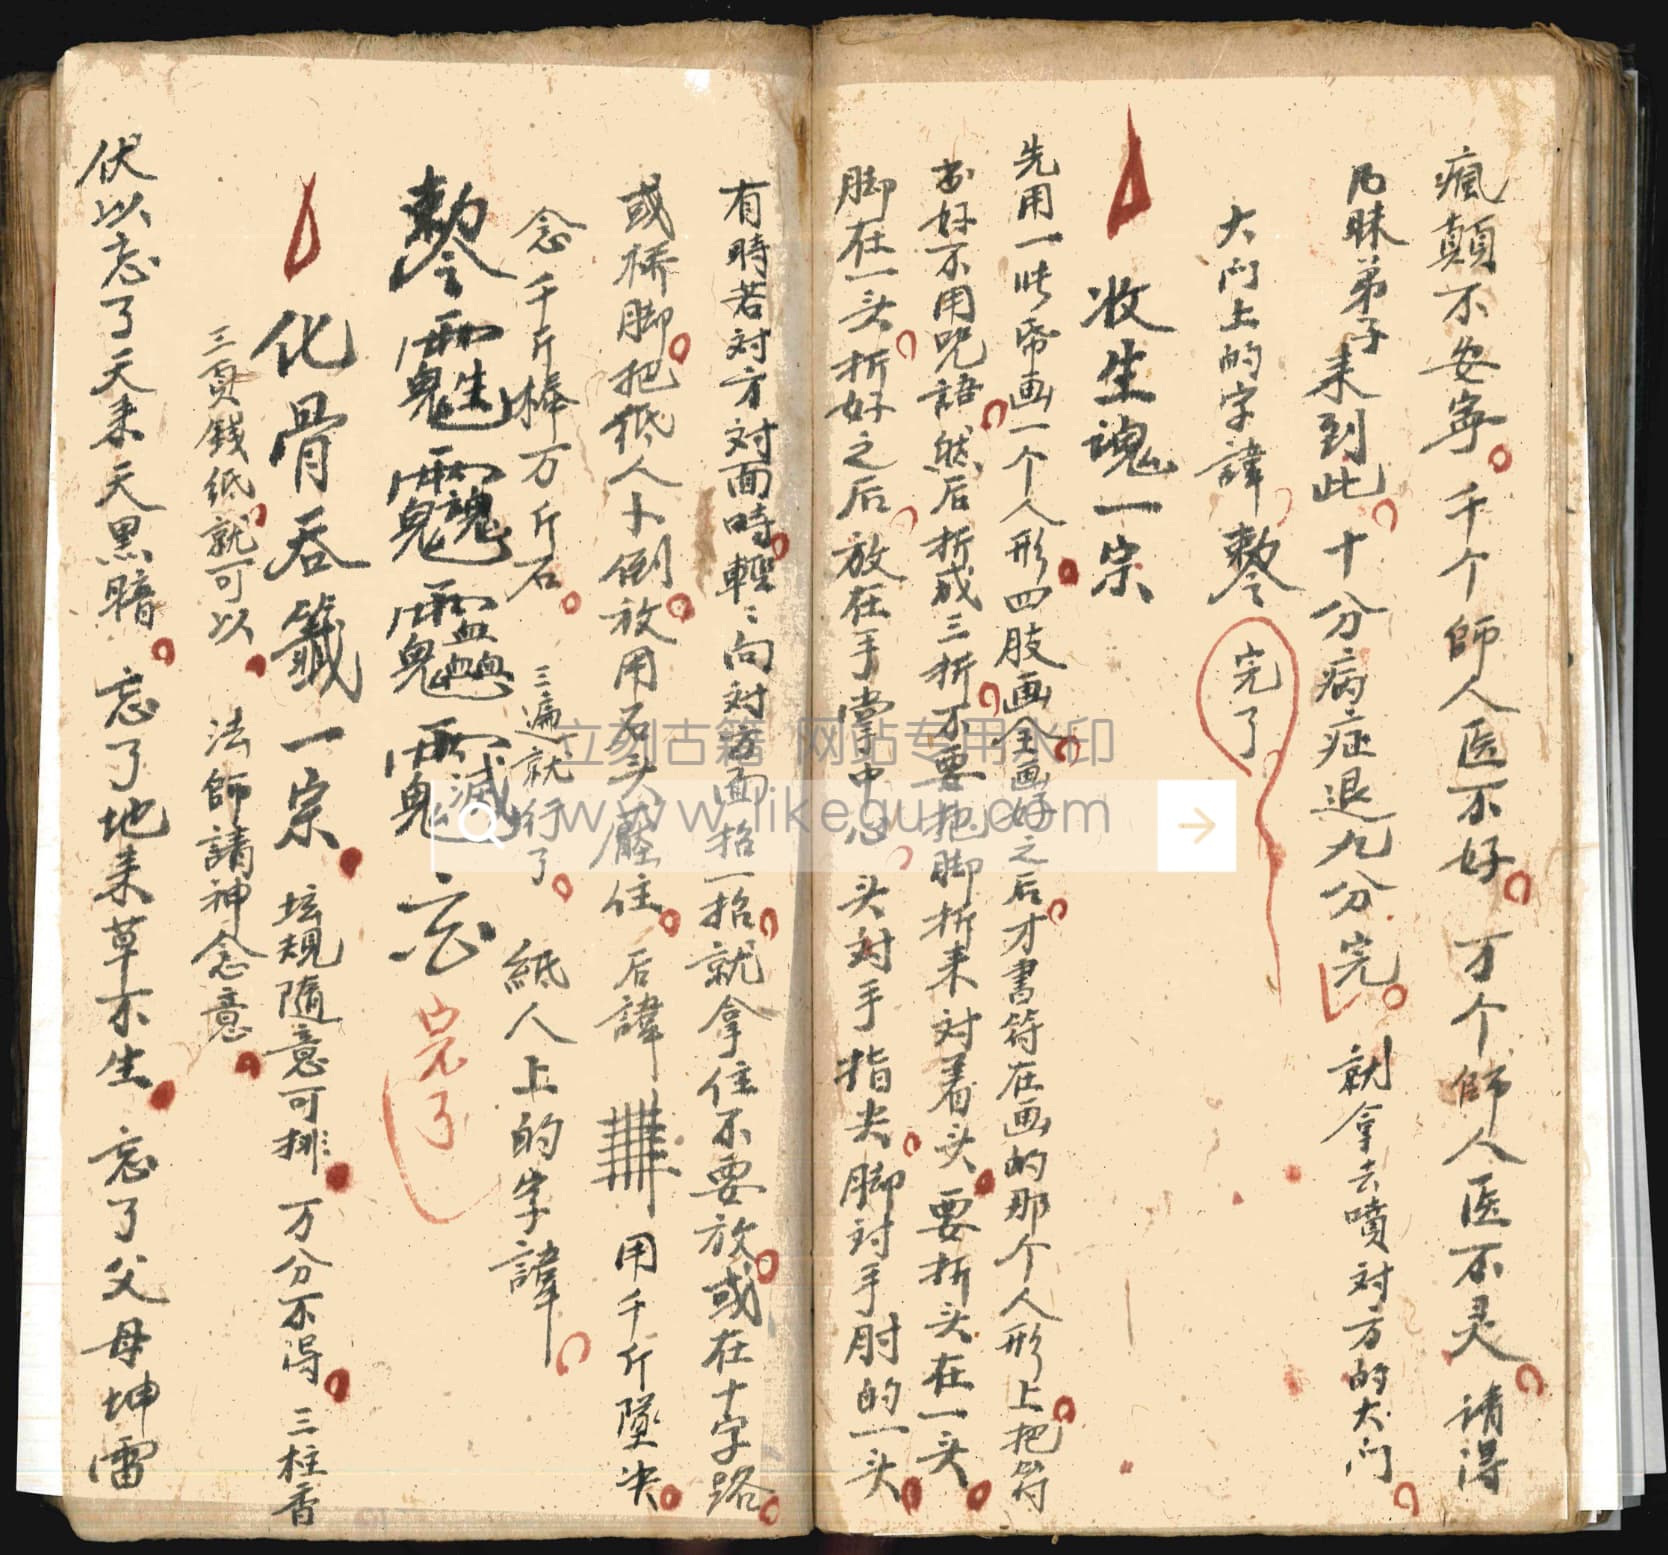 瘋顛不安寧 千个師人医不好 万个師人医不灵 请得
凡昧弟子来到此 十分病症退九分 完 就拿去噴对方的大门
大门上的字諱 完了
收生魂一宗
先用一张帋画一个人形 四肢画全 画好之后 才書符在画的那个人形上 把符
画好不用咒語 然后折成三折 不要把脚折来对着头 要折头在一头
脚在一头 折好之后 放在手掌中心 头对手指尖 脚对手肘的一头
有時若对方对面時 輕〻向对方面招一招 就拿住不要放 或在十字路
或桥脚 把紙人卜倒放 用石头壓住 后諱 用千斤墜决
念千斤棒万斤石 三遍就行了 紙人上的字諱
忘 完了
化骨吞籤一宗 坛規隨意可排 万分不得 三柱香
三頁錢紙就可以 法師請神念意
伏以忘了天来天黑暗 忘了地来草不生 忘了父母坤雷
立刻古籍 网站专用水印
www.likeguji.com